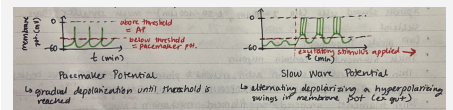 membrane pot. (mV)
0
-60
above threshold
= AP
below threshold
= pacemaker pot.
t (min)
Pacemaker Potential
↳ gradual depolarization until threshold is
reached
0
-60
excitatory stimulus applied →
t (min)
Slow Wave Potential
↳ alternating depolarizing & hyperpolarizing
swings in membrane pot (ex gut)